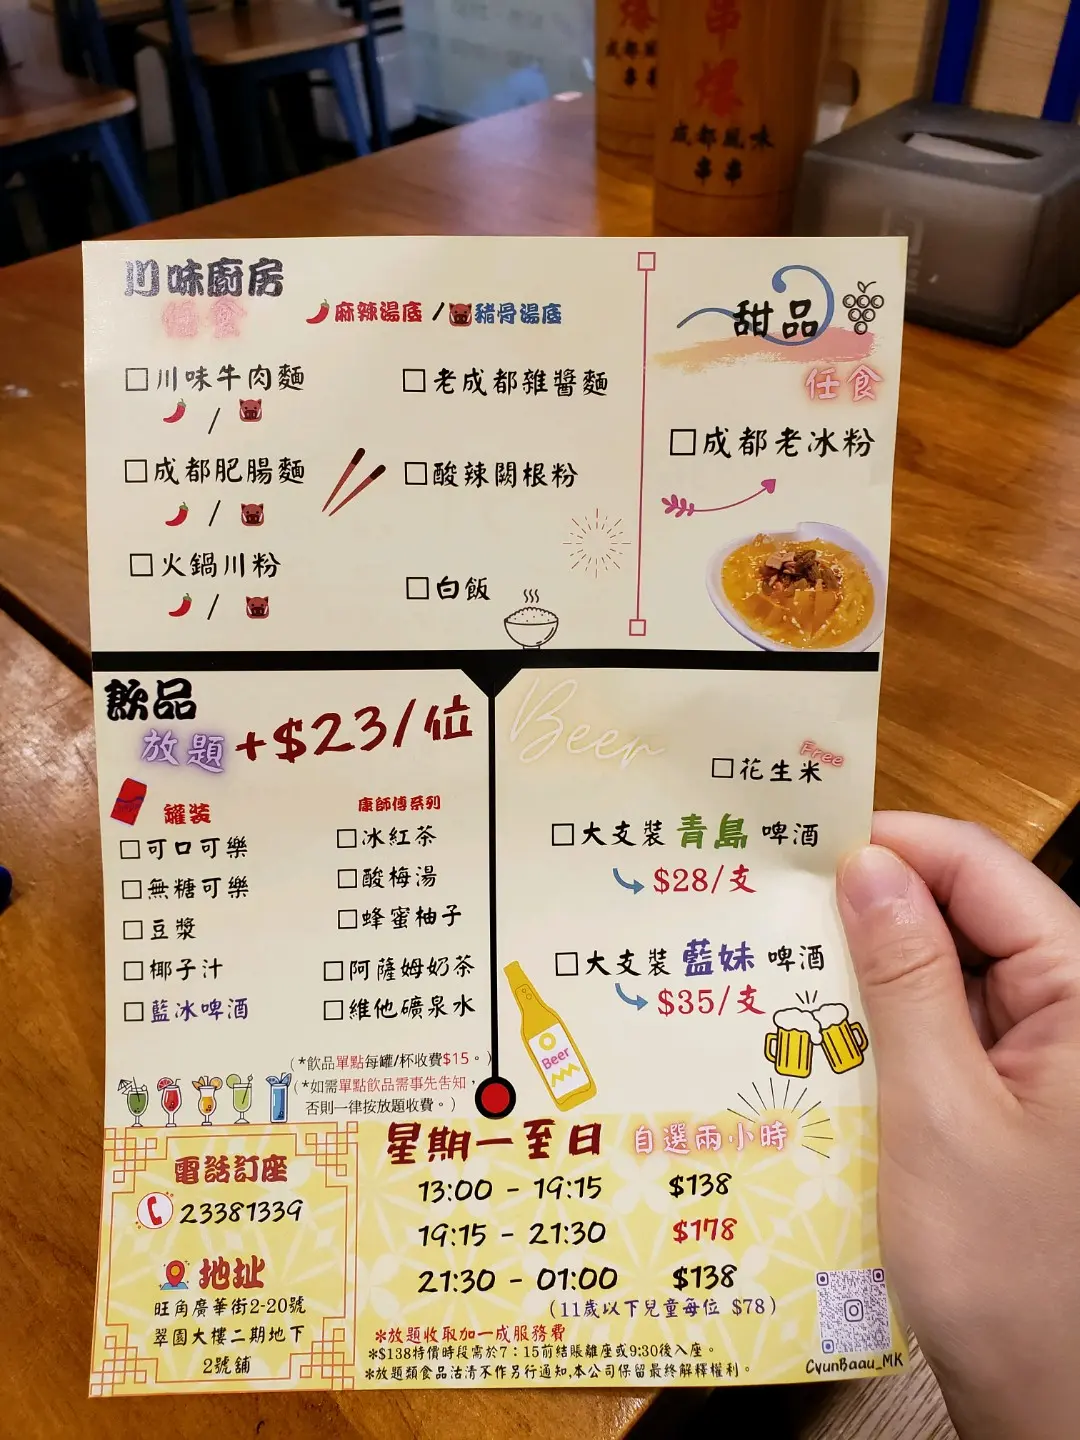 爆
成都風
串串
串
爆
成都風味
串串
川味廚房
任食
麻辣湯底 / 豬骨湯底
□川味牛肉麵
/
□成都肥腸麵
/
□火鍋川粉
/
□老成都雜醬麵
□酸辣闕根粉
□白飯
甜品
任食
□成都老冰粉
飲品
放題 +$23/位
罐裝
□可口可樂
□無糖可樂
□豆漿
□椰子汁
□藍冰啤酒
康師傅系列
□冰紅茶
□酸梅湯
□蜂蜜柚子
□阿薩姆奶茶
□維他礦泉水
(*飲品單點每罐/杯收費$15。)
(*如需單點飲品需事先告知，
否則一律按放題收費。)
Beer
Free
□花生米
□大支裝 青島 啤酒
$28/支
□大支裝 藍妹 啤酒
$35/支
Beer
電話訂座
23381339
地址
旺角廣華街2-20號
翠園大樓二期地下
2號舖
星期一至日 自選兩小時
13:00 - 19:15 $138
19:15 - 21:30 $178
21:30 - 01:00 $138
(11歲以下兒童每位 $78)
*放題收取加一成服務費
*$138特價時段需於7：15前結賬離座或9:30後入座。
*放題類食品沽清不作另行通知,本公司保留最終解釋權利。
CyunBaau_MK